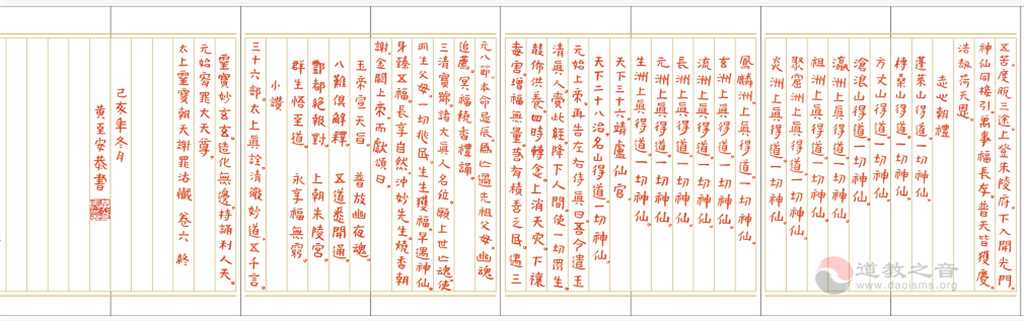 五苦度脫三途上登朱陵府下入開光門
神仙同接引萬事福長存普天皆獲慶
浩劫荷天恩
志心朝禮
蓬萊山得道一切神仙
扶桑山得道一切神仙
方丈山得道一切神仙
滄浪山得道一切神仙
瀛洲上真得道一切神仙
祖洲上真得道一切神仙
聚窟洲上真得道一切神仙
炎洲上真得道一切神仙
鳳麟洲上真得道一切神仙
玄洲上真得道一切神仙
流洲上真得道一切神仙
長洲上真得道一切神仙
元洲上真得道一切神仙
生洲上真得道一切神仙
天下三十六靖廬仙官
天下二十八治名山得道一切神仙
元始上帝再告左右侍真曰吾今遣玉
清真人賫此經降下人間使一切眾生
競俻供養四時轉念上消天灾下禳
毒害增福無量若有積善之民遇三
元八節本命星辰為七過先祖父母幽魂
追薦冥福燒香禮誦
三清寶號諸大真人名位願上世亡魂使
四生父母一切兆民生生獲福早遇神仙
身臻五福長享自然沖妙先生燒香朝
謝金闕上帝而獻頌曰
玉帝宣天旨 普放幽夜魂
八難俱解釋 五道悉開通
酆都絕報對 上朝朱陵宮
群生悟至道 永享福無窮
小讚
三十六部太上真詮清微妙道五千言
靈寶妙玄玄造化無邊持誦利人天
元始寥罪大天尊
太上靈寶朝天謝罪法懺 卷六 終
己亥年冬月
黃至安恭書
道教之音
www.daoisms.org